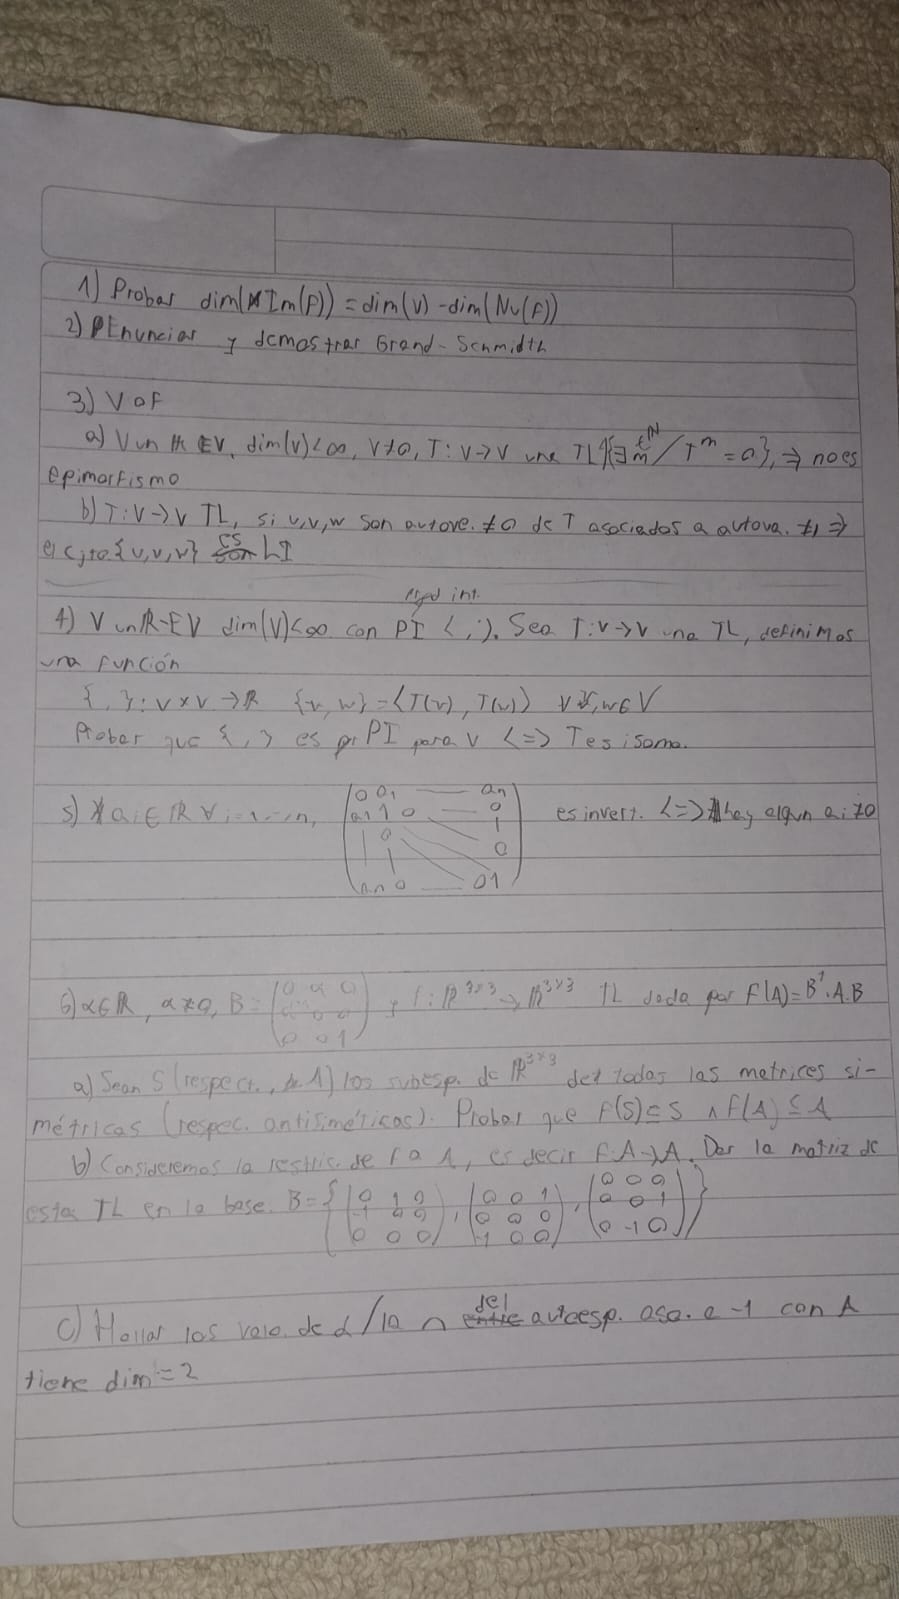 1) Probar dim(Im(f)) = dim(V) - dim(Nu(f))
2) Enunciar y demostrar Grand-Schmidth
3) V o F
a) V un K EV, dim(V)<∞, V≠0, T: V→V una TL / {∃ m ∈ N / T^m = 0}, ⇒ no es
epimorfismo
b) T: V→V TL, si u,v,w son autove. ≠0 de T asociados a autova. ≠, ⇒
el cjto. {u,v,w} es LI
prod int.
4) V un R-EV dim(V)<∞ con PI < , >. Sea T: V→V una TL, definimos
una función
{ , }: V×V → R {v,w} = <T(v), T(w)> ∀ v,w ∈ V
Probar que { , } es PI para V <=> T es isomo.
5) ai ∈ R ∀ i=1...n, (0 a1 — an
a1 1 0 — 0
| 0 |
| 0
an 0 — 0 1) es invert. <=> hay algun ai ≠0
6) α∈R, α≠0, B = (0 α 0
0 0
0 0 1) y f: R^3×3 → R^3×3 TL dada por F(A) = B^t.A.B
a) Sean S (respect., A) los subesp. de R^3×3 de todas las matrices si-
métricas (respec. antisiméticas). Probar que F(S) ⊆ S ∧ F(A) ⊆ A
b) Consideremos la restric. de f a A, es decir F: A→A. Dar la matriz de
esta TL en la base. B = {(0 1 0
-1 0 0
0 0 0), (0 0 1
0 0 0
-1 0 0), (0 0 0
0 0 1
0 -1 0)}
c) Hallar los valo. de α / la ∩ del autoesp. aso. a -1 con A
tiene dim = 2